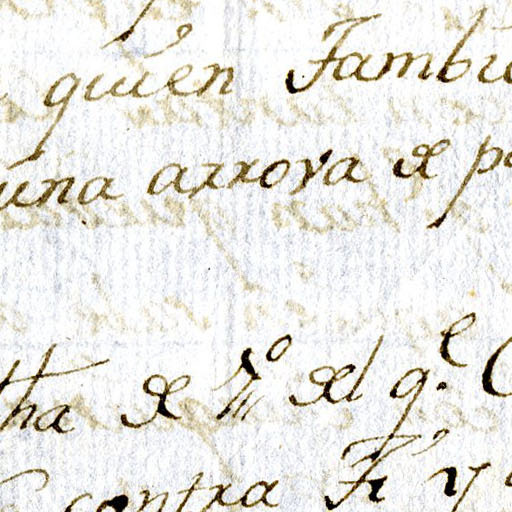 quien Tambie
una arrova de pa
tha de Mº del q.e C
contra Fr y